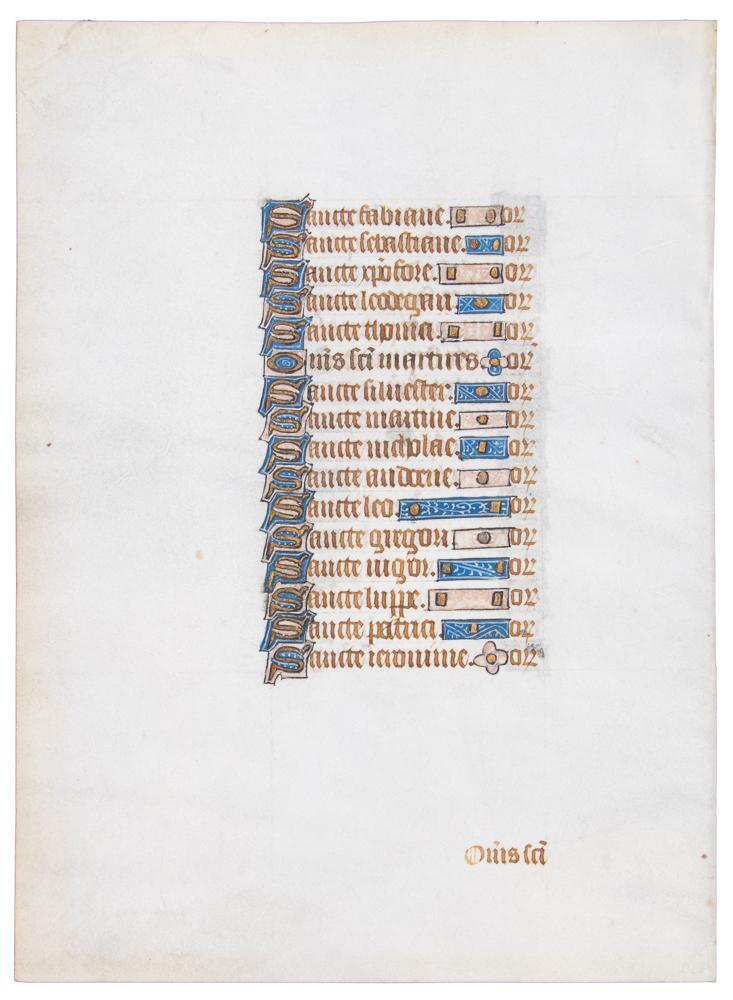 Sancte fabiane. or
Sancte sebastiane. or
Sancte xpofore. or
Sancte leodegari. or
Sancte or
Om̄s sc̄i martires or
Sancte siluester. or
Sancte martine. or
Sancte nicholae. or
Sancte audoene. or
Sancte leo. or
Sancte gregori or
Sancte nigasi. or
Sancte luppe. or
Sancte patrici. or
Sancte ieronime. or
Om̄s sc̄i